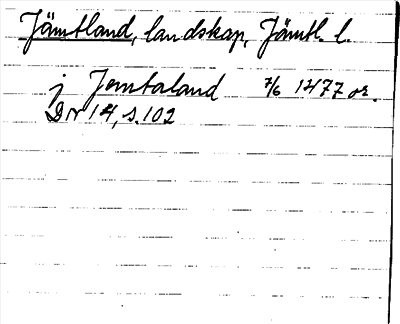 Jämtland, landskap, Jämtl. l.
j Jemtaland 7/6 1477 or.
DN 14, s. 102